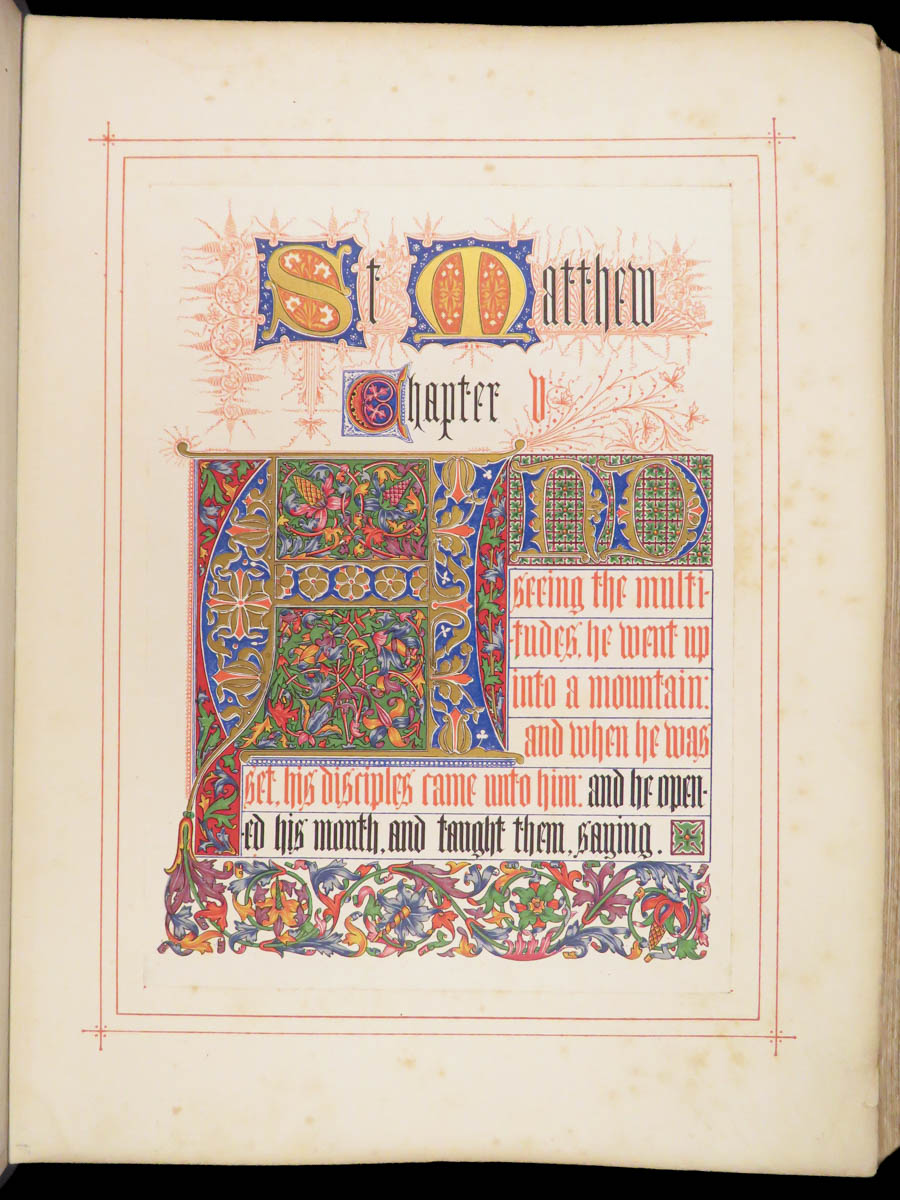 St Matthew
Chapter V
AND
seeing the multi-
tudes, he went up
into a mountain:
and when he was
set, his disciples came unto him: and he open-
ed his mouth, and taught them, saying.